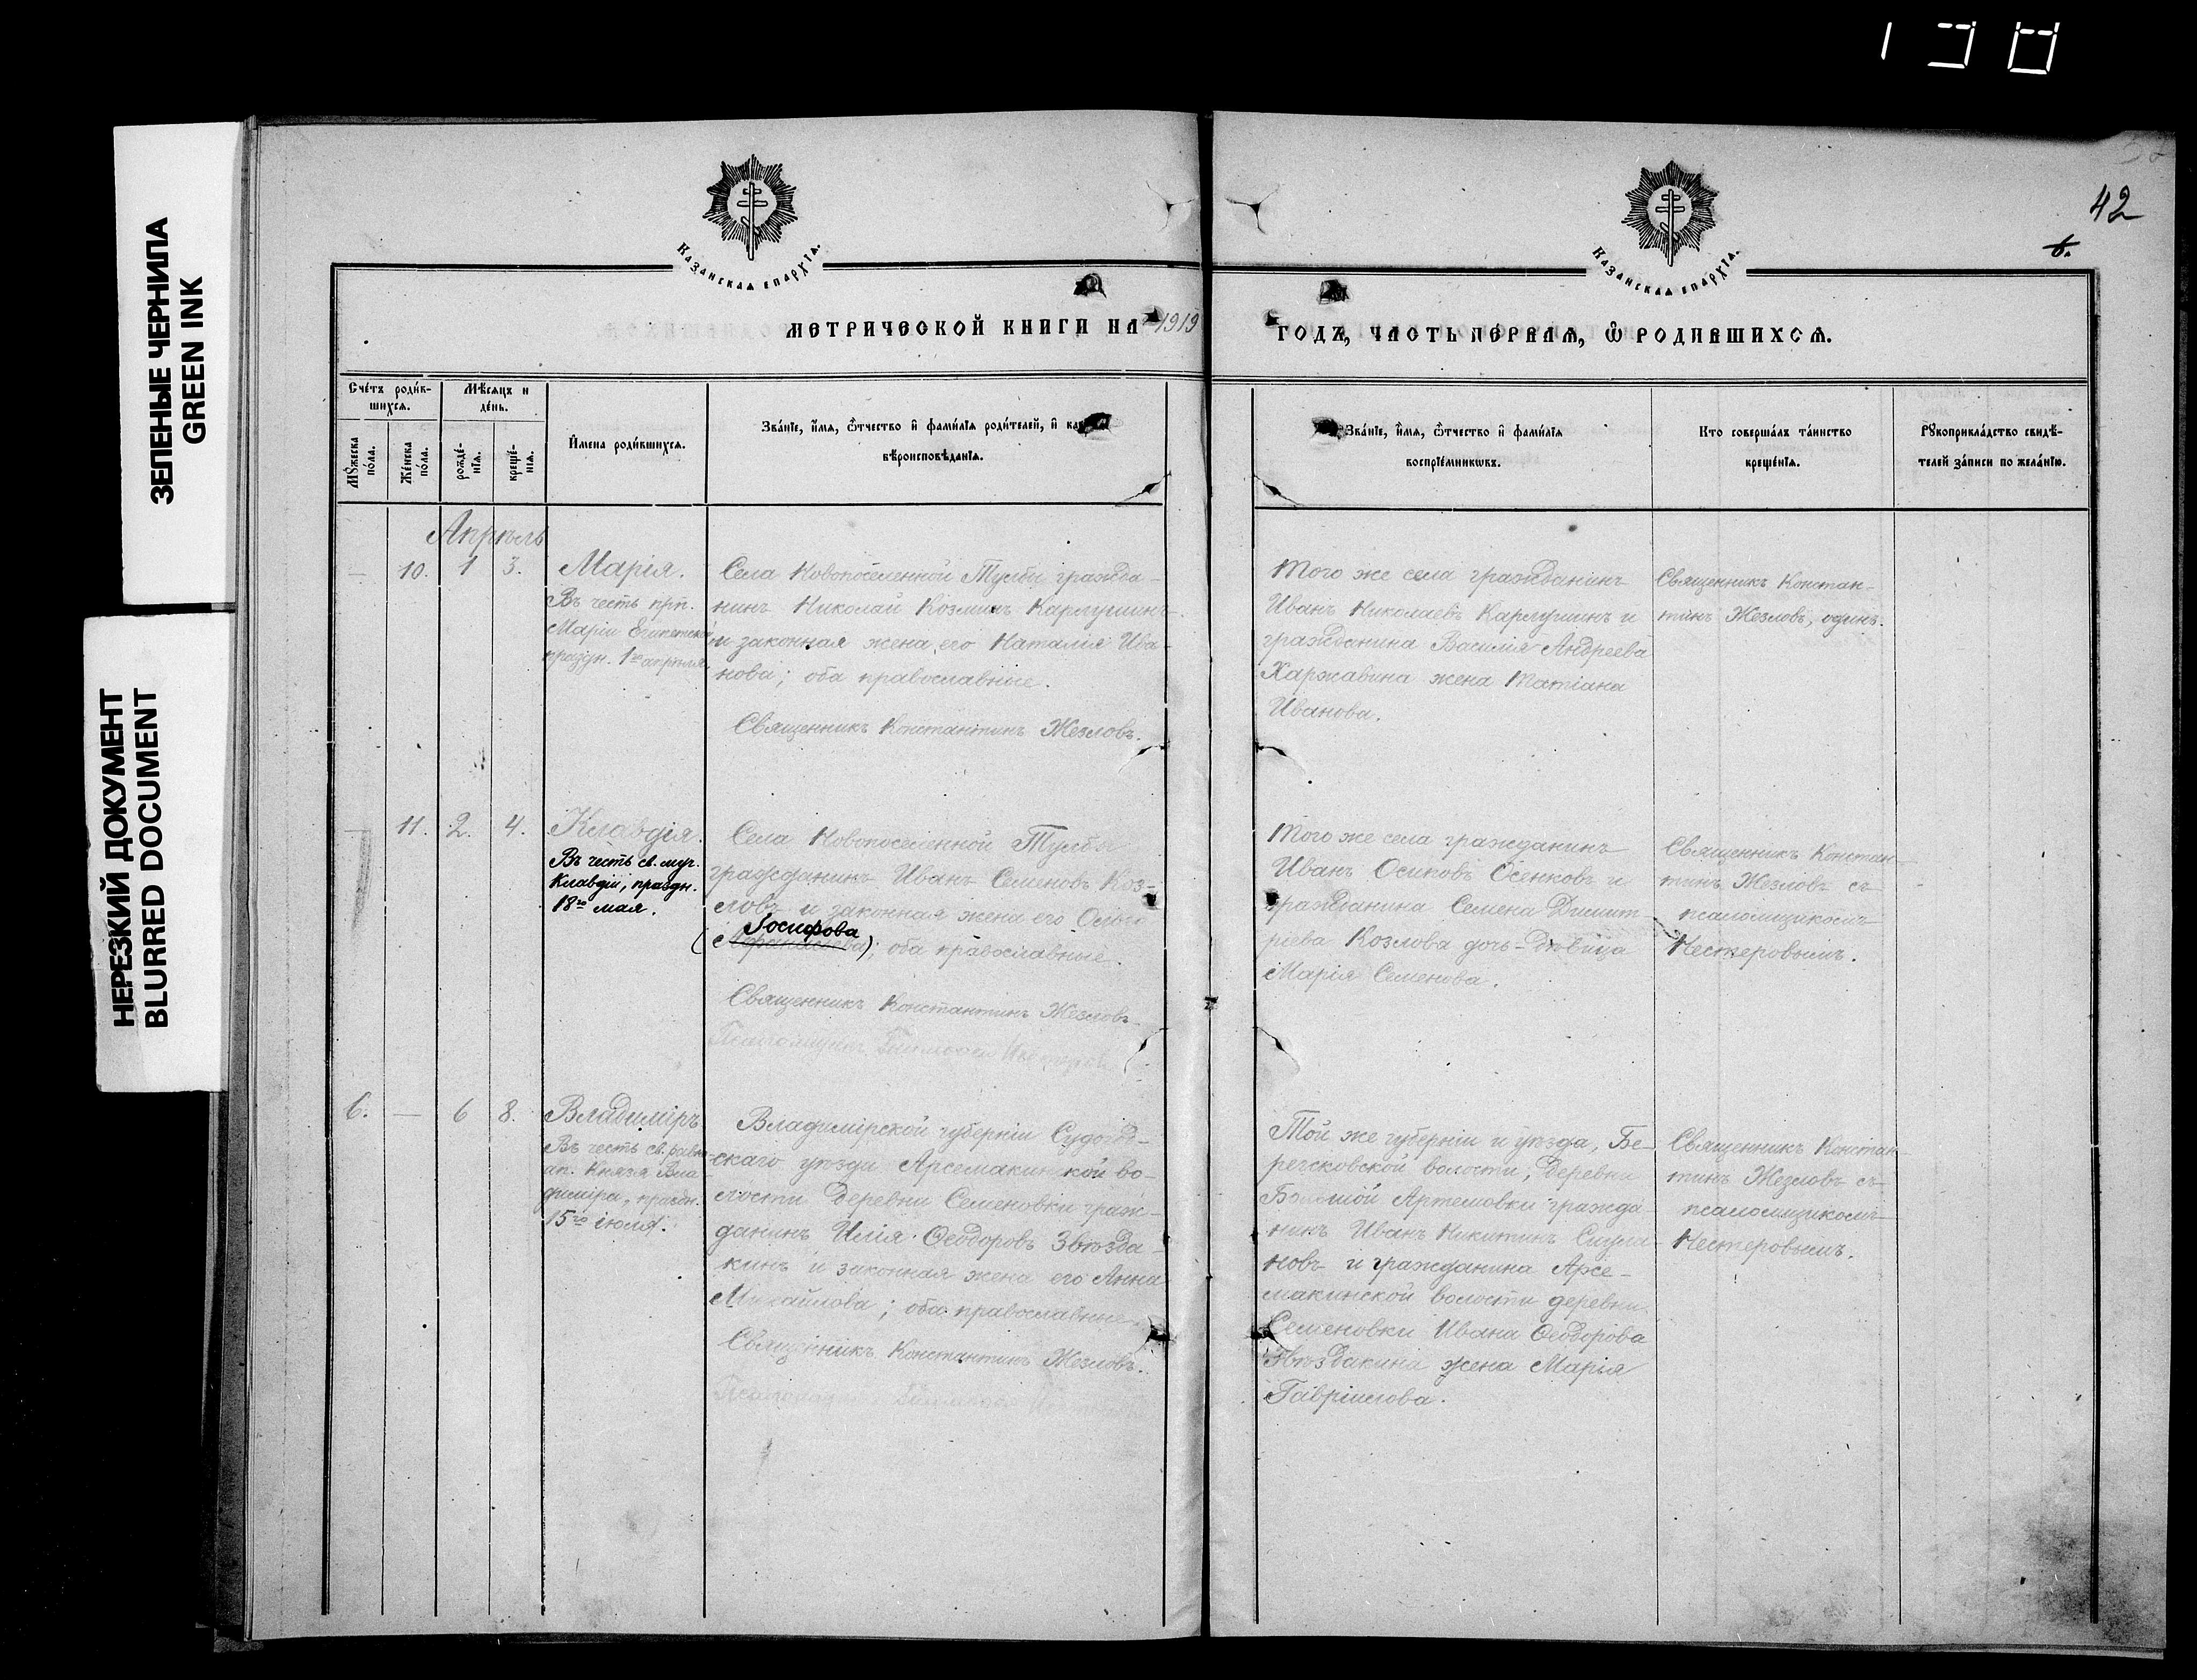 ЗЕЛЕНЫЕ ЧЕРНИЛА
GREEN INK
НЕРЕЗКИЙ ДОКУМЕНТ
BLURRED DOCUMENT
42
6.
Казанская епархїя.
Казанская епархїя.
МЕТРИЧЕСКОЙ КНИГИ НА 1919
ГОДЪ, ЧАСТЬ ПЕРВАЯ, Ѿ РОДИВШИХСЯ.
Счетъ родив-
шихся.
Мужеска
пола.
Женска
пола.
Мѣсяцъ и
день.
рожде-
нїя.
креще-
нїя.
Имена родившихся.
Званїе, имя, ѿтчество и фамилїя родителей, и
вѣроисповѣданїя.
Званїе, имя, ѿтчество и фамилїя
воспрїемниковъ.
Кто совершалъ таинство
крещенїя.
Рукоприкладство свидѣ-
телей записи по желанїю.
Апрѣль
— 10. 1 3.
Марія.
Въ честь прп.
Маріи Египетской
праздн. 1го апрѣля.
Села Новопоселенной Тулбы гражда-
нинъ Николай Козминъ Карлушинъ
и законная жена его Наталія Ива-
нова; оба православные.
Священникъ Константинъ Жезловъ.
Того же села гражданинъ
Иванъ Николаевъ Карлушинъ и
гражданина Василія Андреева
Харжавина жена Татіана
Иванова.
Священникъ Констан-
тинъ Жезловъ, одинъ.
— 11. 2. 4.
Клавдія.
Въ честь св. муч.
Клавдіи, праздн.
18го мая.
Села Новопоселенной Тулбы
гражданинъ Иванъ Семеновъ Коз-
ловъ и законная жена его
Іосифова
оба православные.
Священникъ Константинъ Жезловъ
Того же села гражданинъ
Иванъ Осиповъ Осенковъ и
гражданина Семена Димит-
ріева Козлова дочь-дѣвица
Марія Семенова.
Священникъ Констан-
тинъ Жезловъ съ
псаломщикомъ
Нестеровымъ.
6. — 6 8.
Владиміръ
Въ честь св. равно-
ап. Князя Вла-
диміра, праздн.
15го іюля.
Владимірской губерніи Судогод-
скаго уѣзда Арсемакинской во-
лости деревни Семеновки граж-
данинъ Илія Ѳеодоровъ Звѣзда-
кинъ и законная жена его Анна
Михайлова; оба православные.
Священникъ Константинъ Жезловъ.
Той же губерніи и уѣзда, Бе-
речковской волости, деревни
Большой Артемовки гражда-
нинъ Иванъ Никитинъ
и гражданина Арсе-
макинской волости деревни
Семеновки Ивана Ѳеодорова
Звѣздакина жена Марія
Гавріилова.
Священникъ Констан-
тинъ Жезловъ съ
псаломщикомъ
Нестеровымъ.